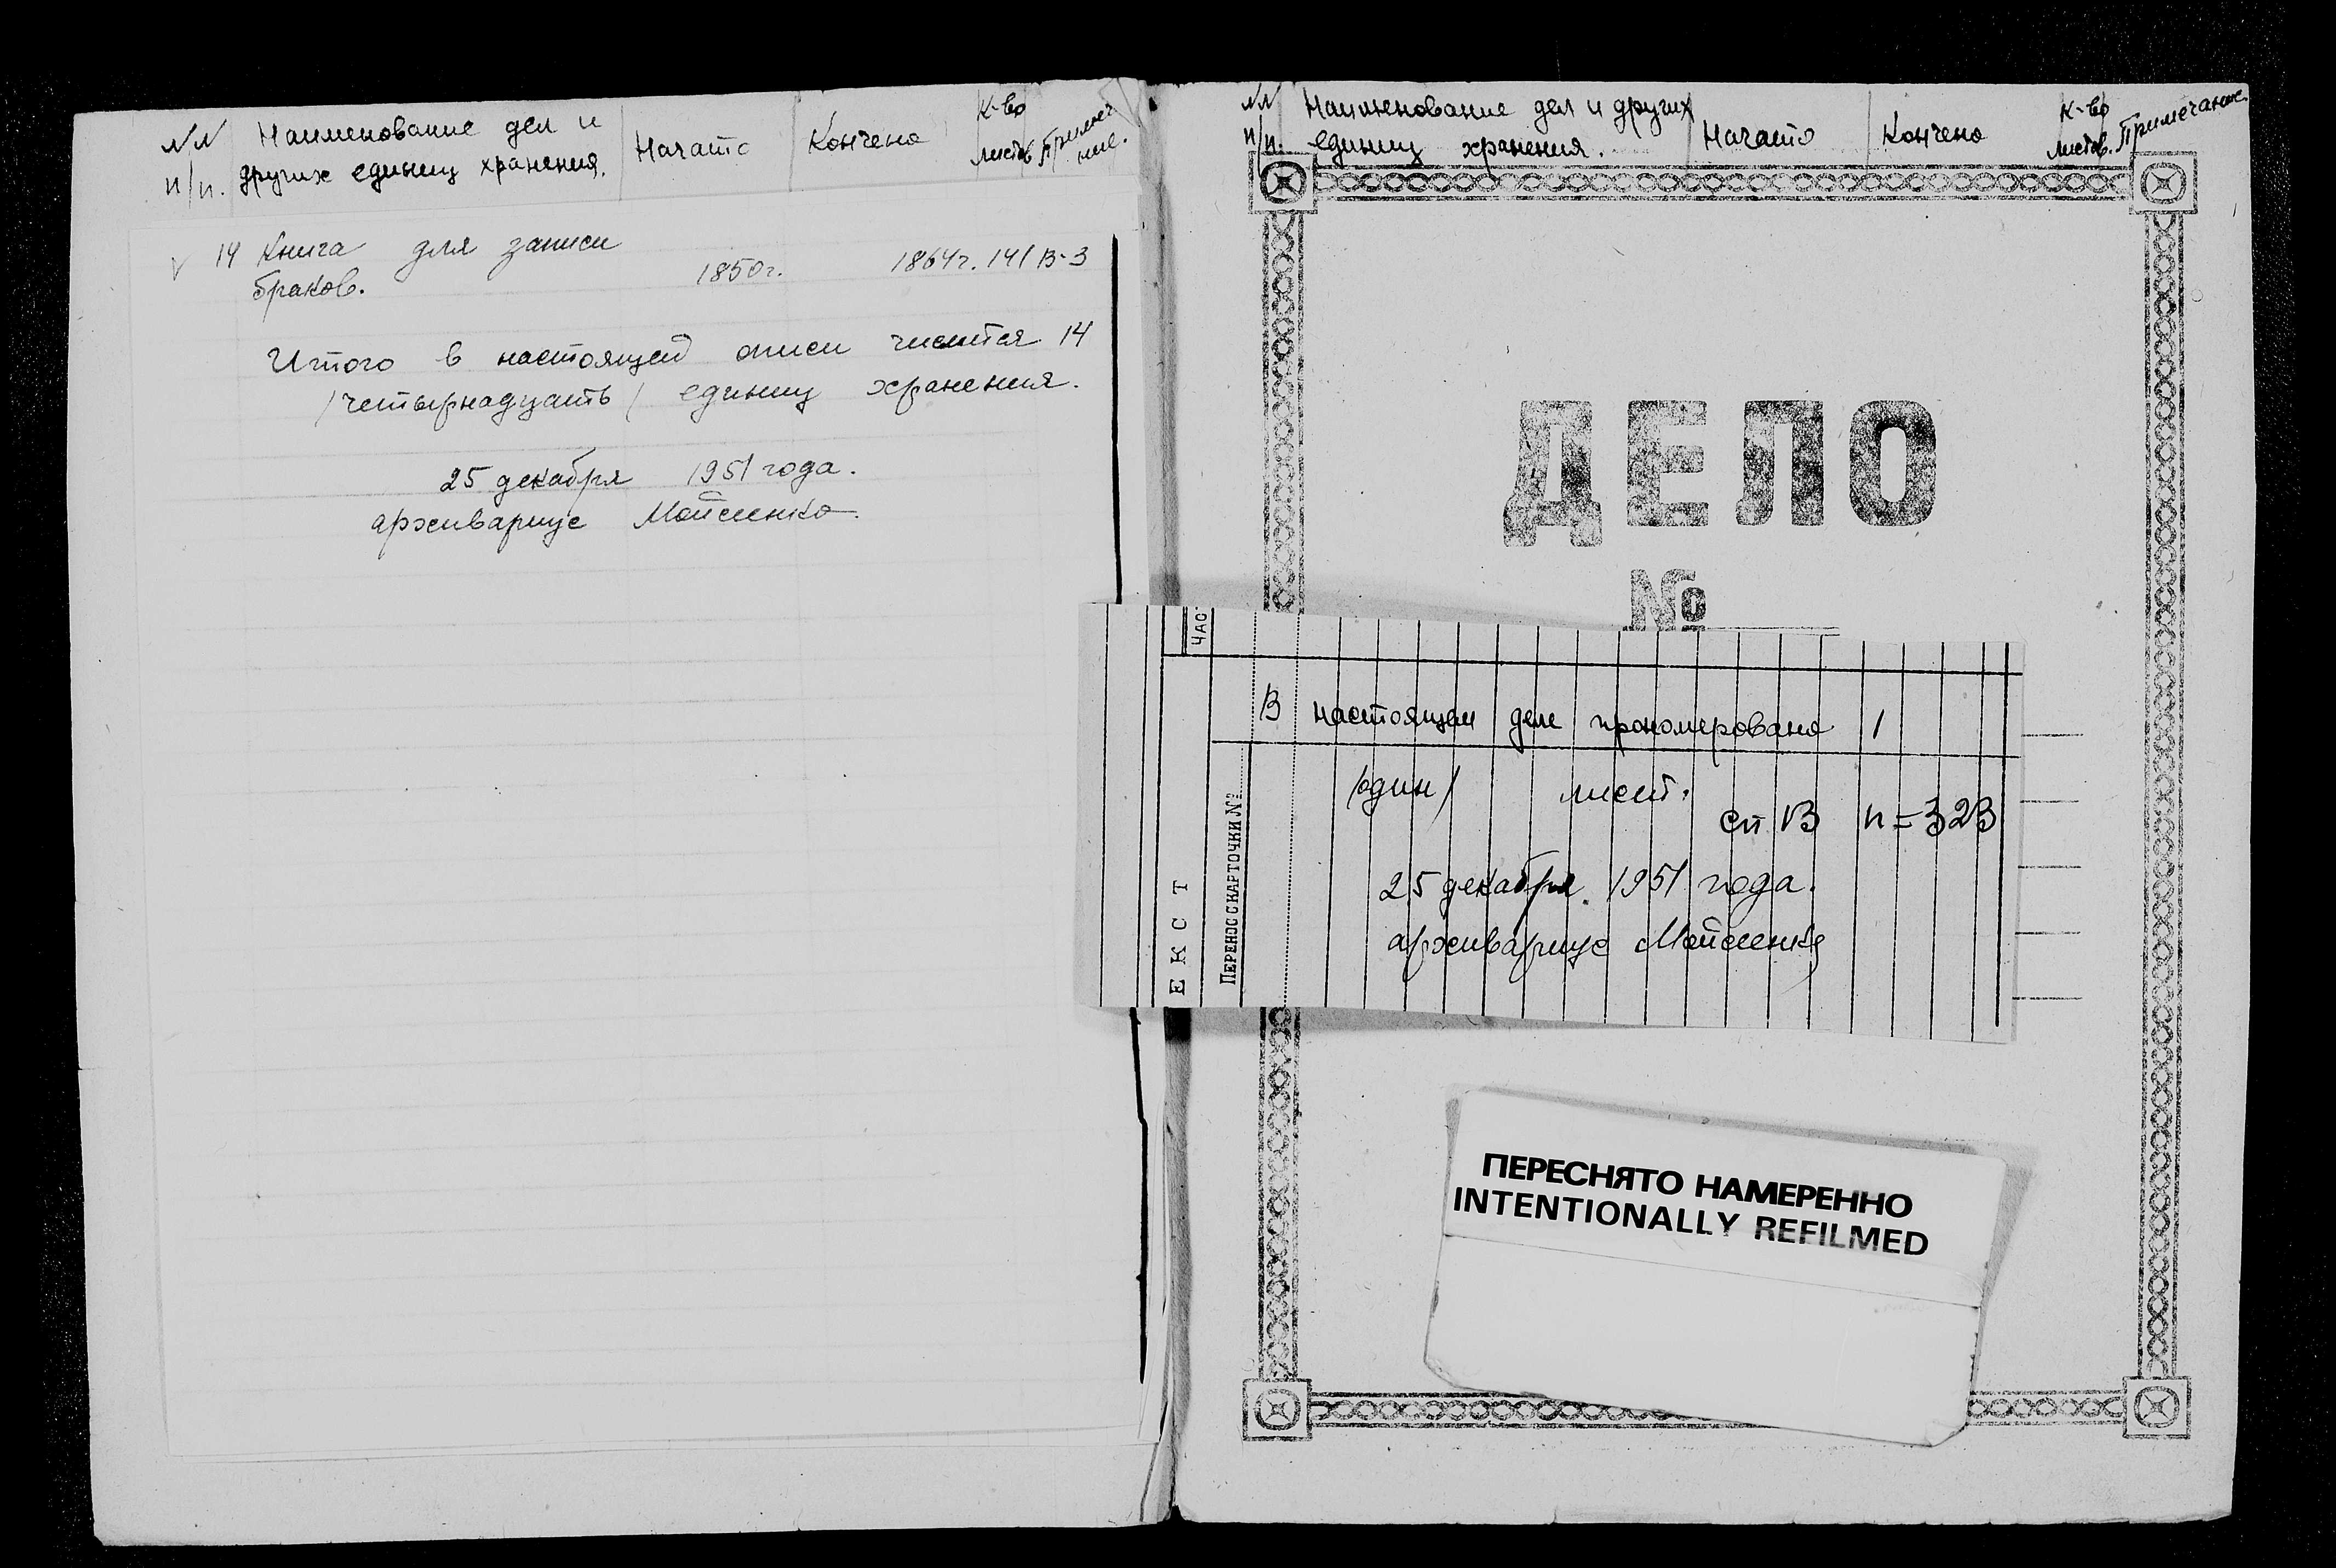 NN Наименование дел и
п/п. других единиц хранения. Начато Кончено К-во листов Примеча ние.
v 14 Книга для записи
браков. 1850г. 1864г. 141 В-3
Итого в настоящей описи числится 14
/четырнадцать/ единиц хранения.
25 декабря 1951 года.
архивариус
NN Наименование дел и других
п/п. единиц хранения. Начато Кончено К-во листов. Примечание
ДЕЛО
№
ЧАС
ЕКСТ
ПЕРЕНОС С КАРТОЧКИ №
В настоящем деле пронумеровано 1
/один/ лист.
25 декабря 1951 года.
архивариус
ПЕРЕСНЯТО НАМЕРЕННО
INTENTIONALLY REFILMED